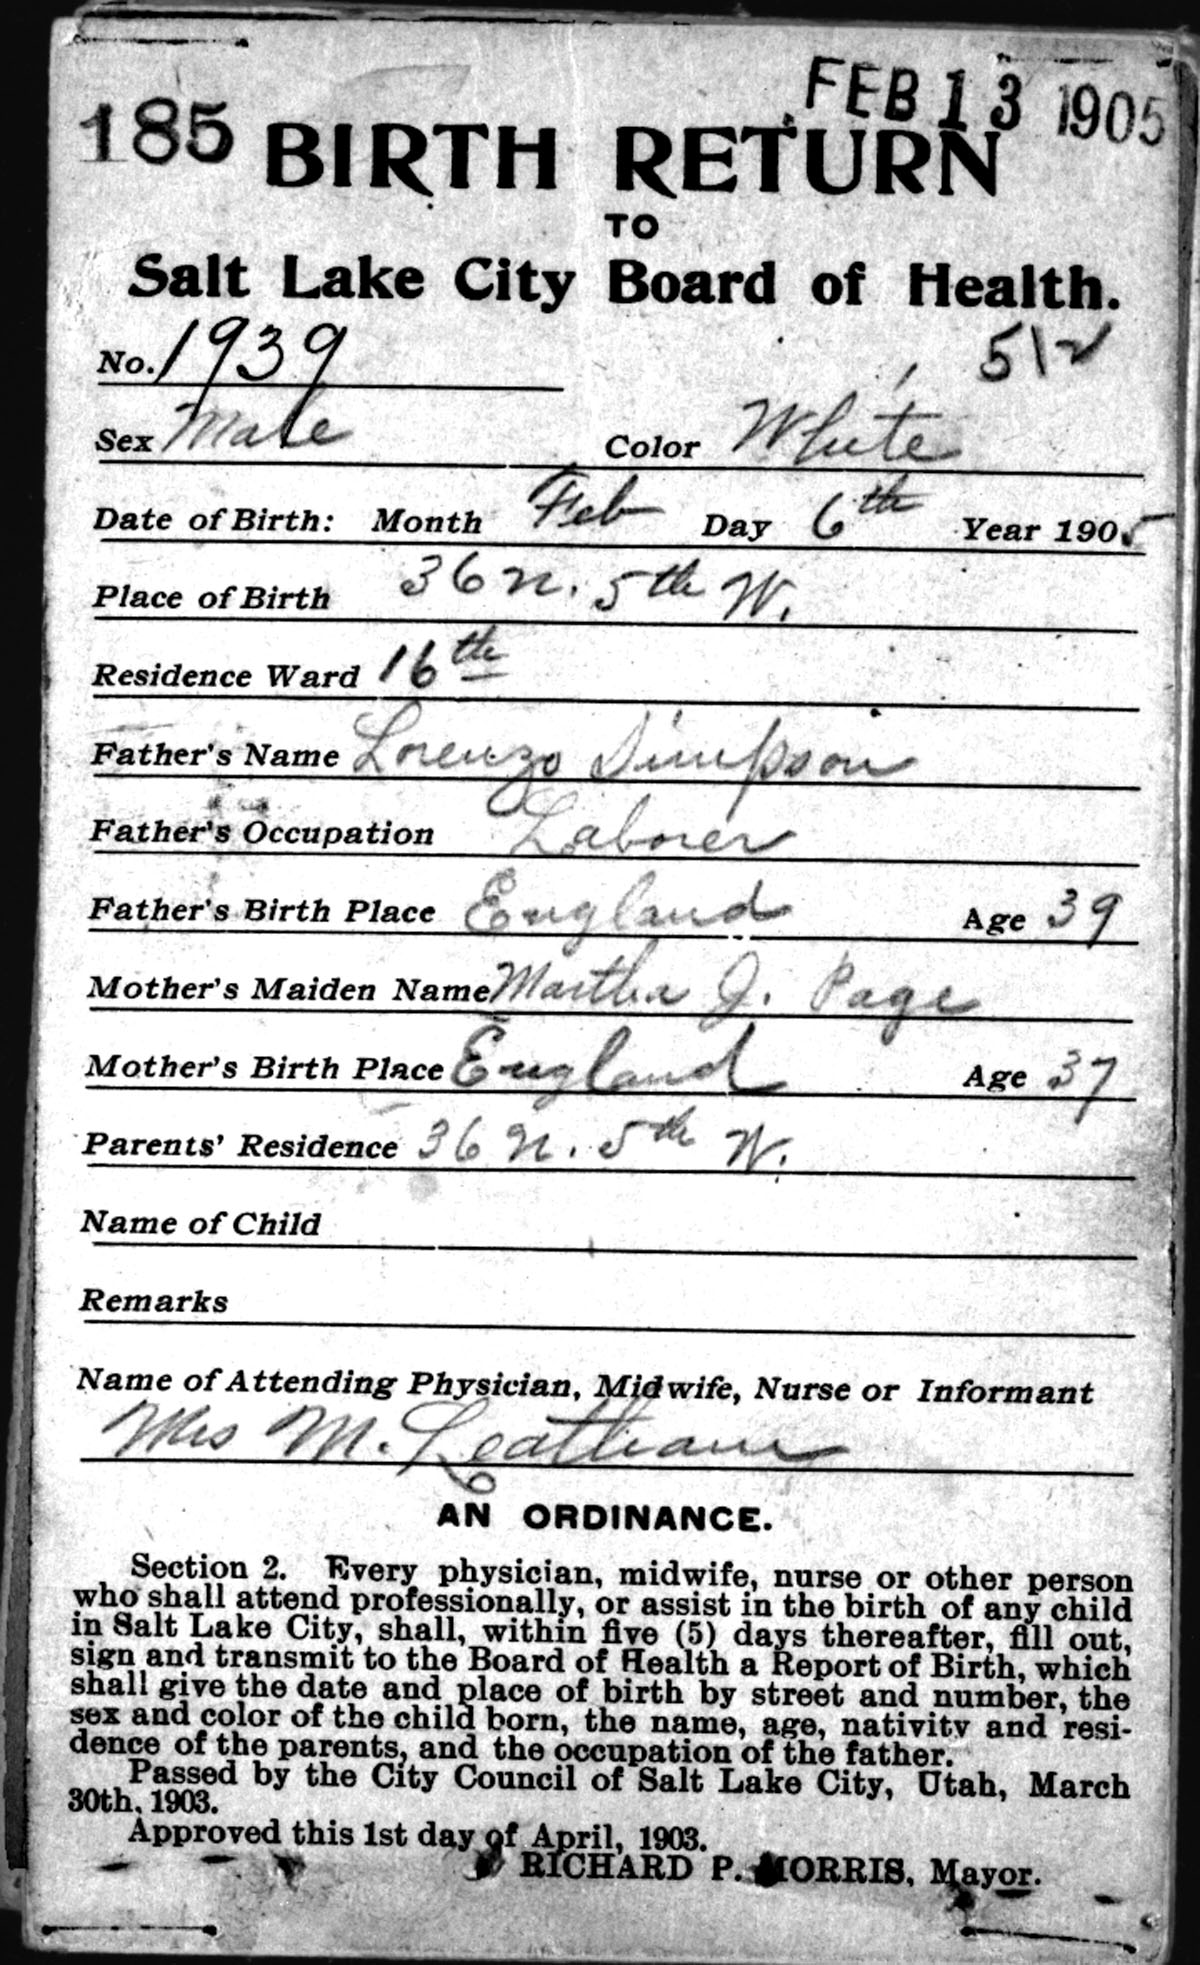 FEB 13 1905
185
BIRTH RETURN
TO
Salt Lake City Board of Health.
No. 1939
512
Sex Male Color White
Date of Birth: Month Feb Day 6th Year 1905
Place of Birth 36 N. 5th W.
Residence Ward 16th
Father's Name Lorenzo Simpson
Father's Occupation Laborer
Father's Birth Place England Age 39
Mother's Maiden Name Martha J. Page
Mother's Birth Place England Age 37
Parents' Residence 36 N. 5th W.
Name of Child
Remarks
Name of Attending Physician, Midwife, Nurse or Informant
Mrs M. Leatham
AN ORDINANCE.
Section 2. Every physician, midwife, nurse or other person
who shall attend professionally, or assist in the birth of any child
in Salt Lake City, shall, within five (5) days thereafter, fill out,
sign and transmit to the Board of Health a Report of Birth, which
shall give the date and place of birth by street and number, the
sex and color of the child born, the name, age, nativity and resi-
dence of the parents, and the occupation of the father.
Passed by the City Council of Salt Lake City, Utah, March
30th, 1903.
Approved this 1st day of April, 1903.
RICHARD P. MORRIS, Mayor.